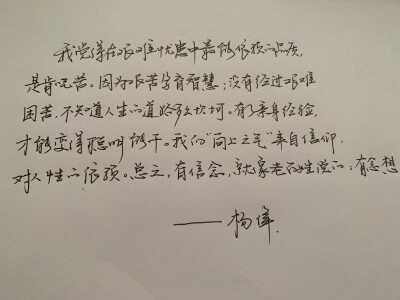 我觉得在艰难忧患中最能依损的品质,
是肯吃苦。因为艰苦孕育智慧;没有经过艰难
困苦,不知道人生的道路多么坎坷。有了亲身经验,
才能变得聪明能干。我们的“向上之气”来自信仰.
对人性的依损。总之,有信念,就象老百姓说的:有念想
——杨绛.